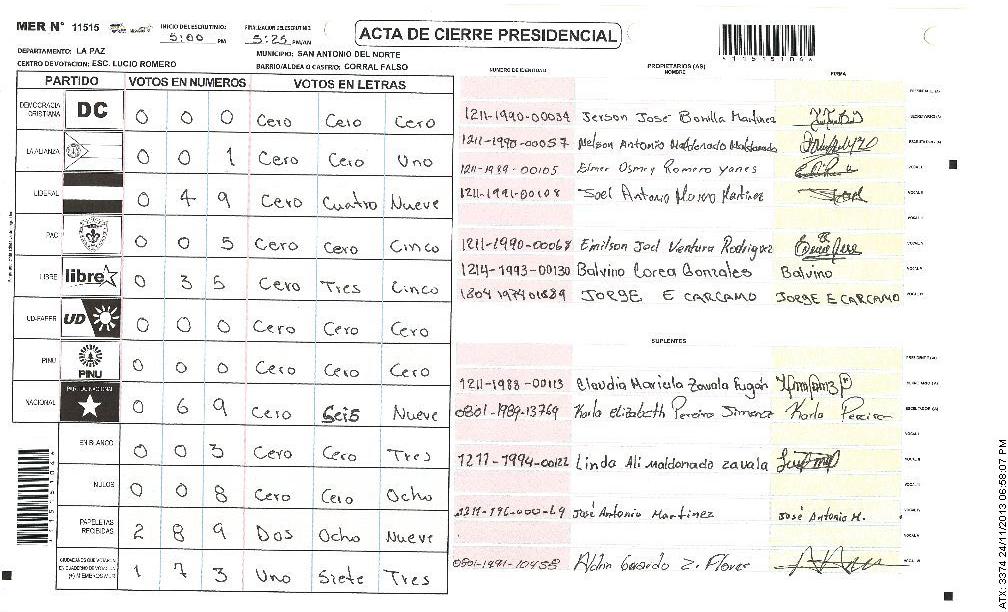 MER N° 11515
INICIO DEL ESCRUTINIO:
5:00 PM
FINALIZACION DEL ESCRUTINIO:
5:25 PM/AM
ACTA DE CIERRE PRESIDENCIAL
1151510
DEPARTAMENTO: LA PAZ
MUNICIPIO: SAN ANTONIO DEL NORTE
CENTRO DE VOTACION: ESC. LUCIO ROMERO
BARRIO/ALDEA O CASTRO: CORRAL FALSO
NUMERO DE IDENTIDAD PROPIETARIOS (AS) NOMBRE FIRMA
PARTIDO VOTOS EN NUMEROS VOTOS EN LETRAS
DEMOCRACIA CRISTIANA DC 0 0 0 Cero Cero Cero
LA ALIANZA 0 0 1 Cero Cero Uno
LIBERAL 0 4 9 Cero Cuatro Nueve
PAC 0 0 5 Cero Cero Cinco
LIBRE libre 0 3 5 Cero Tres Cinco
UD-FAPER UD 0 0 0 Cero Cero Cero
PINU PINU 0 0 0 Cero Cero Cero
NACIONAL PARTIDO NACIONAL 0 6 9 Cero Seis Nueve
EN BLANCO 0 0 3 Cero Cero Tres
NULOS 0 0 8 Cero Cero Ocho
PAPELETAS RECIBIDAS 2 8 9 Dos Ocho Nueve
CIUDADANOS QUE VOTARON 1 7 3 Uno Siete Tres
1211-1990-00034 Jerson José Bonilla Martinez
1211-1990-00057 Nelson Antonio Maldonado Maldonado
1211-1989-00105 Elmer Osmey Romero yanes
1211-1991-00108 Joel Antonio Moreno Martinez
1211-1990-00068 Emilson Joel Ventura Rodriguez
1214-1993-00130 Balvino Corea Gonzales Balvino
1804 1974 01889 JORGE E CARCAMO JORGE E CARCAMO
SUPLENTES
1211-1988-00113 Claudia Mariela Zavala
0801-1989-13769 Karla Elizabeth Pereira Jimenez Karla Pereira
1211-1994-00122 Linda Ali Maldonado zavala
José Antonio Martinez José Antonio M.
0801-1991-10458 Gerardo Z. Flores
ATX: 3374 24/11/2013 06:58:07 PM